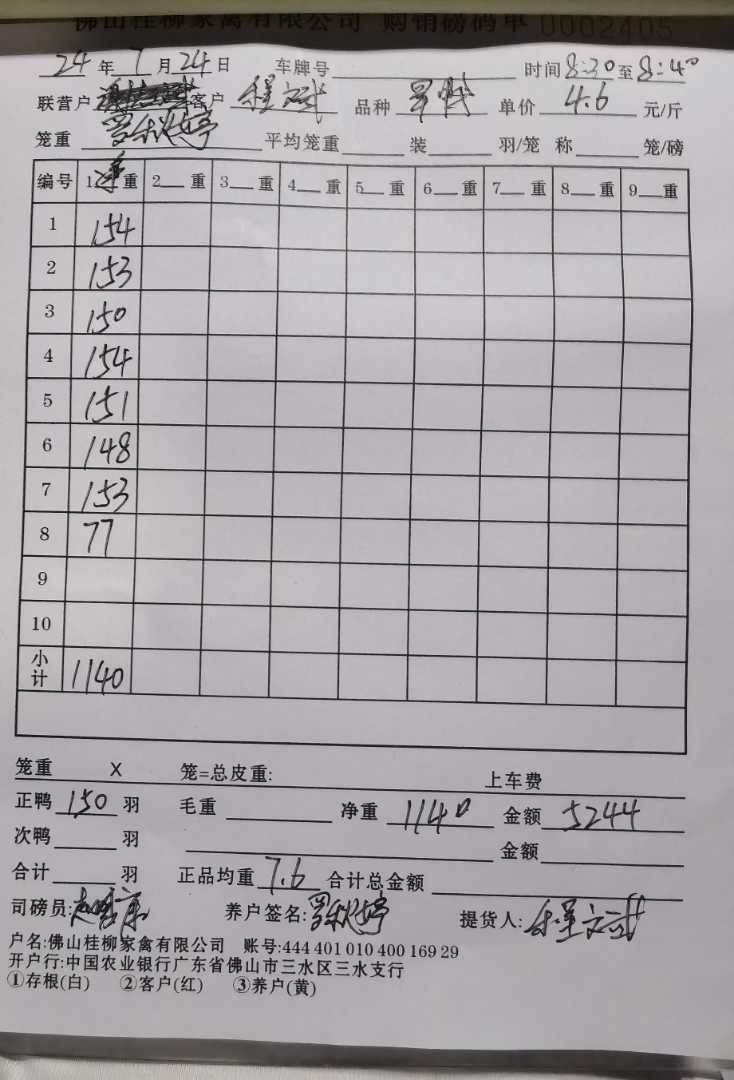 佛山桂柳家禽有限公司 购销磅码单 0002405
24年7月24日 车牌号 时间8:30至8:40
联营户 客户 程文武 品种 单价 4.6 元/斤
笼重 罗秋婷 平均笼重 装 羽/笼 称 笼/磅
编号 1净重 2 重 3 重 4 重 5 重 6 重 7 重 8 重 9 重
1 154
2 153
3 150
4 154
5 151
6 148
7 153
8 77
9
10
小计 1140
笼重 X 笼=总皮重: 上车费
正鸭 150 羽 毛重 净重 1140 金额 5244
次鸭 羽 金额
合计 羽 正品均重 7.6 合计总金额
司磅员: 养户签名:罗秋婷 提货人:程文武
户名:佛山桂柳家禽有限公司 账号:444 401 010 400 169 29
开户行:中国农业银行广东省佛山市三水区三水支行
①存根(白) ②客户(红) ③养户(黄)